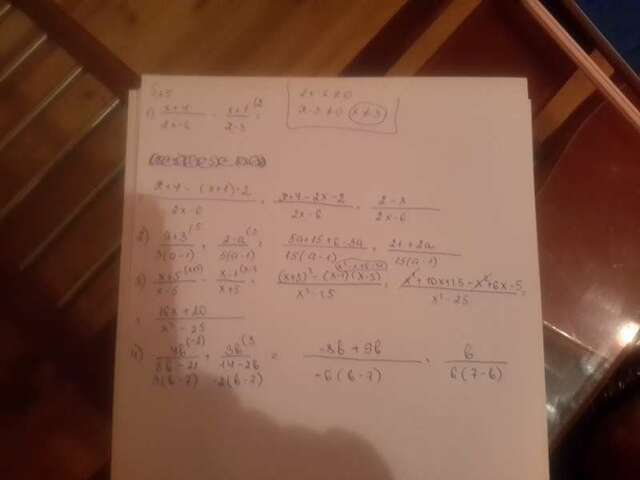 1) (x+4)/(2x-6) - (x+1)/(x-3) (2 =
2x-6≠0
x-3≠0 x≠3
(x+4-(x+1)·2)/(2x-6) = (x+4-2x-2)/(2x-6) = (2-x)/(2x-6)
2) (a+3)/(3(a-1)) (5 + (2-a)/(5(a-1)) (3 = (5a+15+6-3a)/(15(a-1)) = (21+2a)/(15(a-1))
3) (x+5)/(x-5) (x+5) - (x-1)/(x+5) (x-5) = ((x+5)²-(x-1)(x-5))/(x²-25) = (x²+10x+25-x²+6x-5)/(x²-25) =
= (16x+20)/(x²-25)
4) 4b/(3b-21) (-2) + 3b/(14-2b) (3 = (-8b+9b)/(-6(b-7)) = b/(6(7-b))
3(b-7) -2(b-7)